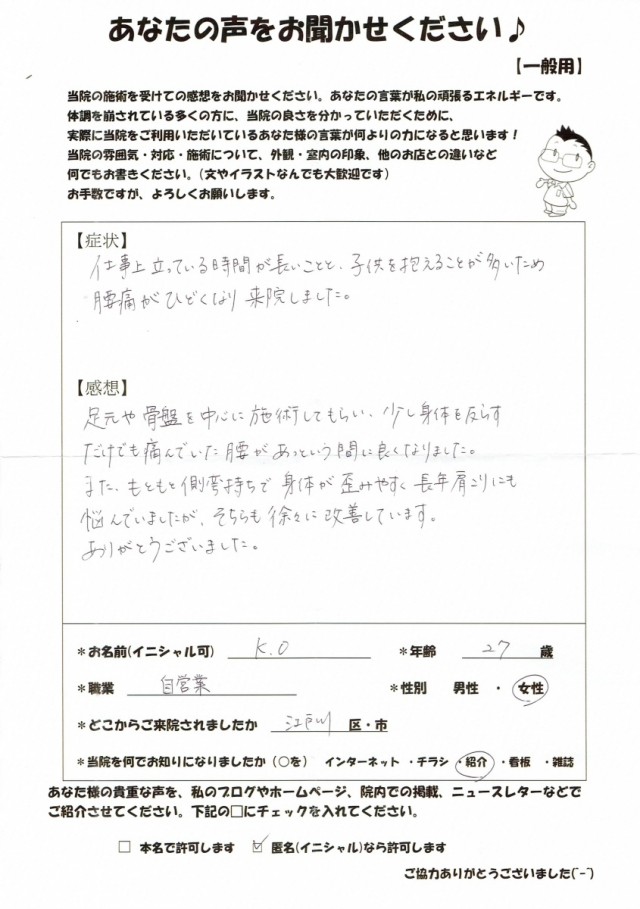 あなたの声をお聞かせください♪
【一般用】
当院の施術を受けての感想をお聞かせください。あなたの言葉が私の頑張るエネルギーです。
体調を崩されている多くの方に、当院の良さを分かっていただくために、
実際に当院をご利用いただいているあなた様の言葉が何よりの力になると思います！
当院の雰囲気・対応・施術について、外観・室内の印象、他のお店との違いなど
何でもお書きください。（文やイラストなんでも大歓迎です）
お手数ですが、よろしくお願いします。
【症状】
仕事上立っている時間が長いことと、子供を抱えることが多いため
腰痛がひどくなり来院しました。
【感想】
足元や骨盤を中心に施術してもらい、少し身体を反らす
だけでも痛んでいた腰があっという間に良くなりました。
また、もともと側弯持ちで身体が歪みやすく長年肩こりにも
悩んでいましたが、そちらも徐々に改善しています。
ありがとうございました。
*お名前(イニシャル可) K.O *年齢 27 歳
*職業 自営業 *性別 男性 ・ 女性
*どこからご来院されましたか 江戸川 区・市
*当院を何でお知りになりましたか（○を） インターネット ・チラシ ・紹介 ・看板 ・雑誌
あなた様の貴重な声を、私のブログやホームページ、院内での掲載、ニュースレターなどで
ご紹介させてください。下記の□にチェックを入れてください。
□ 本名で許可します ☑ 匿名(イニシャル)なら許可します
ご協力ありがとうございました(^-^)